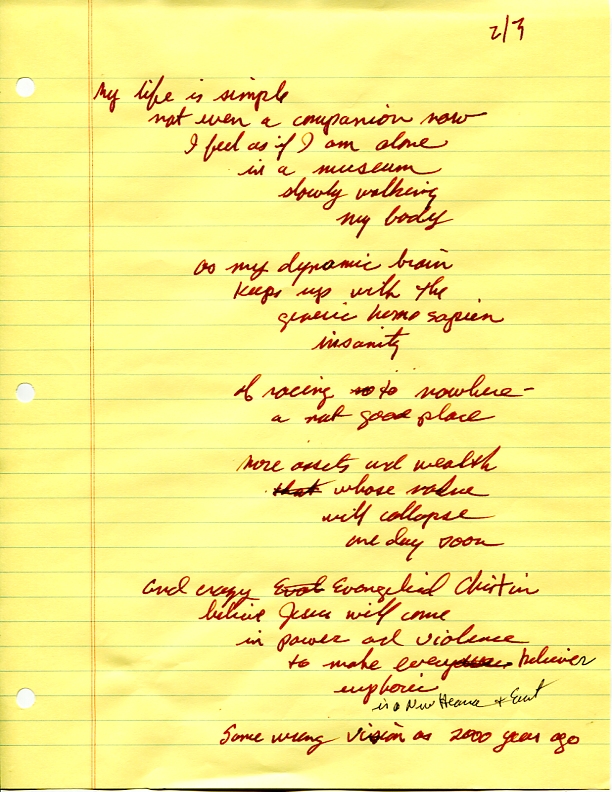 2/3
My life is simple
not even a companion now
I feel as if I am alone
in a museum
slowly walking
my body
as my dynamic brain
keeps up with the
generic homo sapien
insanity
of racing to nowhere -
a not good place
more assets and wealth
that whose value
will collapse
one day soon
and crazy Evangelical Christin
believe Jesus will come
in power ad violence
to make every believer
euphoric
in a New Heava + Eart
Same wrong vision as 2000 year ago